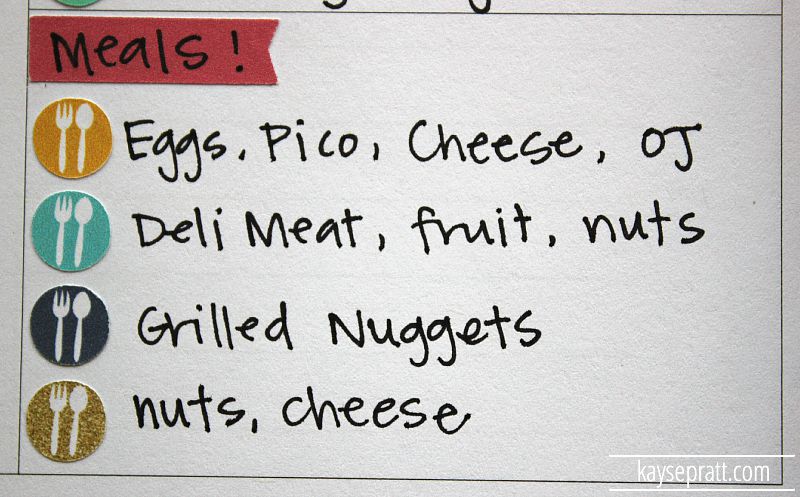 Meals!
Eggs, Pico, Cheese, OJ
Deli Meat, fruit, nuts
Grilled Nuggets
nuts, cheese
kaysepratt.com